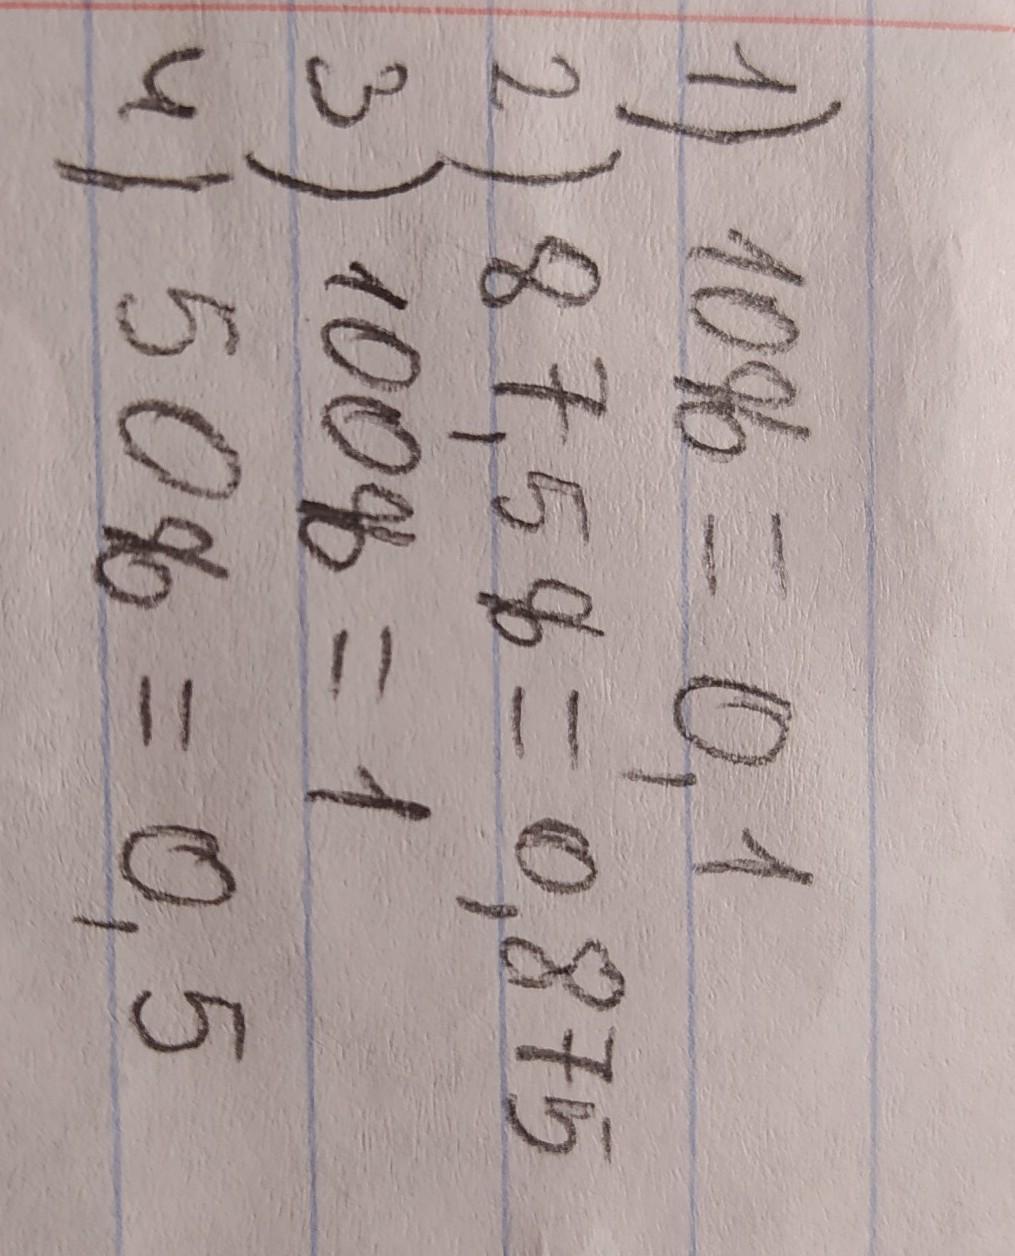 1) 10% = 0,1
2) 87,5% = 0,875
3) 100% = 1
4) 50% = 0,5